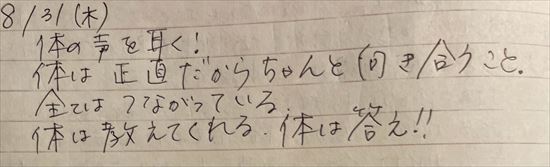 8/31(木)
体の声を耳く!
体は正直だからちゃんと向き合うこと.
全てはつながっている.
体は教えてくれる.体は答え!!